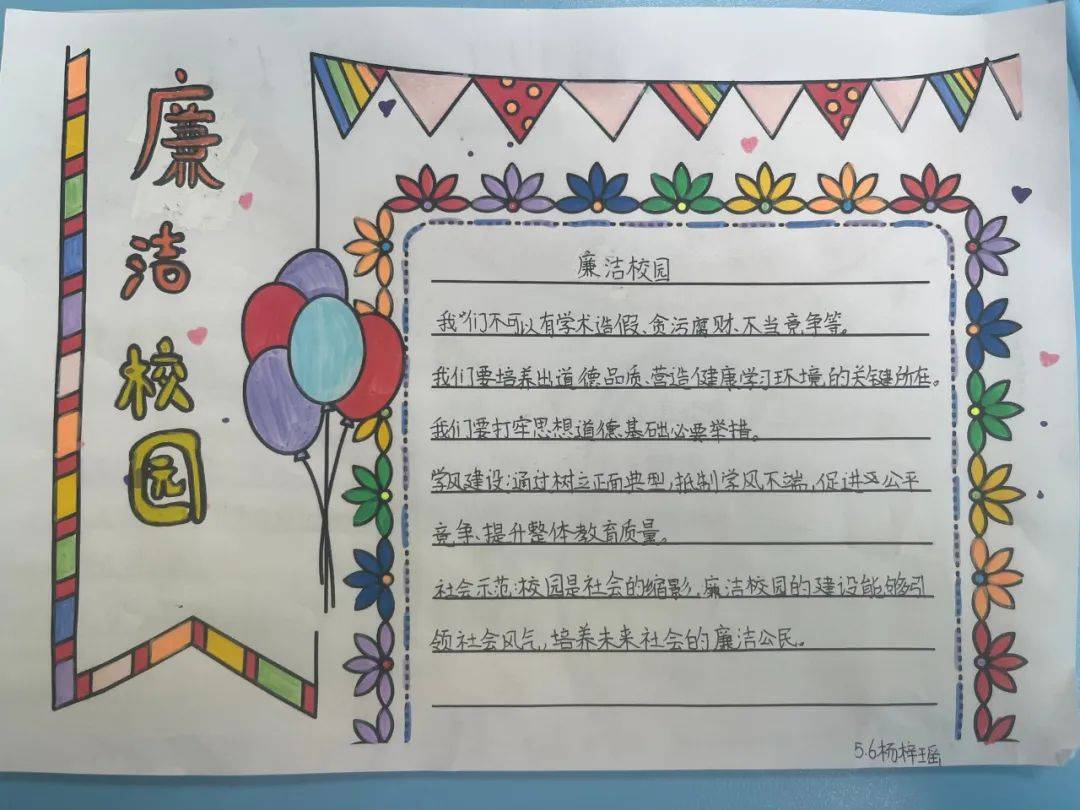 廉洁校园
廉洁校园
我们不可以有学术造假、贪污腐财、不当竞争等。
我们要培养出道德品质、营造健康学习环境的关键所在。
我们要打牢思想道德基础必要举措。
学风建设:通过树立正面典型,抵制学风不端,促进公平
竞争、提升整体教育质量。
社会示范:校园是社会的缩影,廉洁校园的建设能够引
领社会风气,培养未来社会的廉洁公民。
5.6杨梓瑶